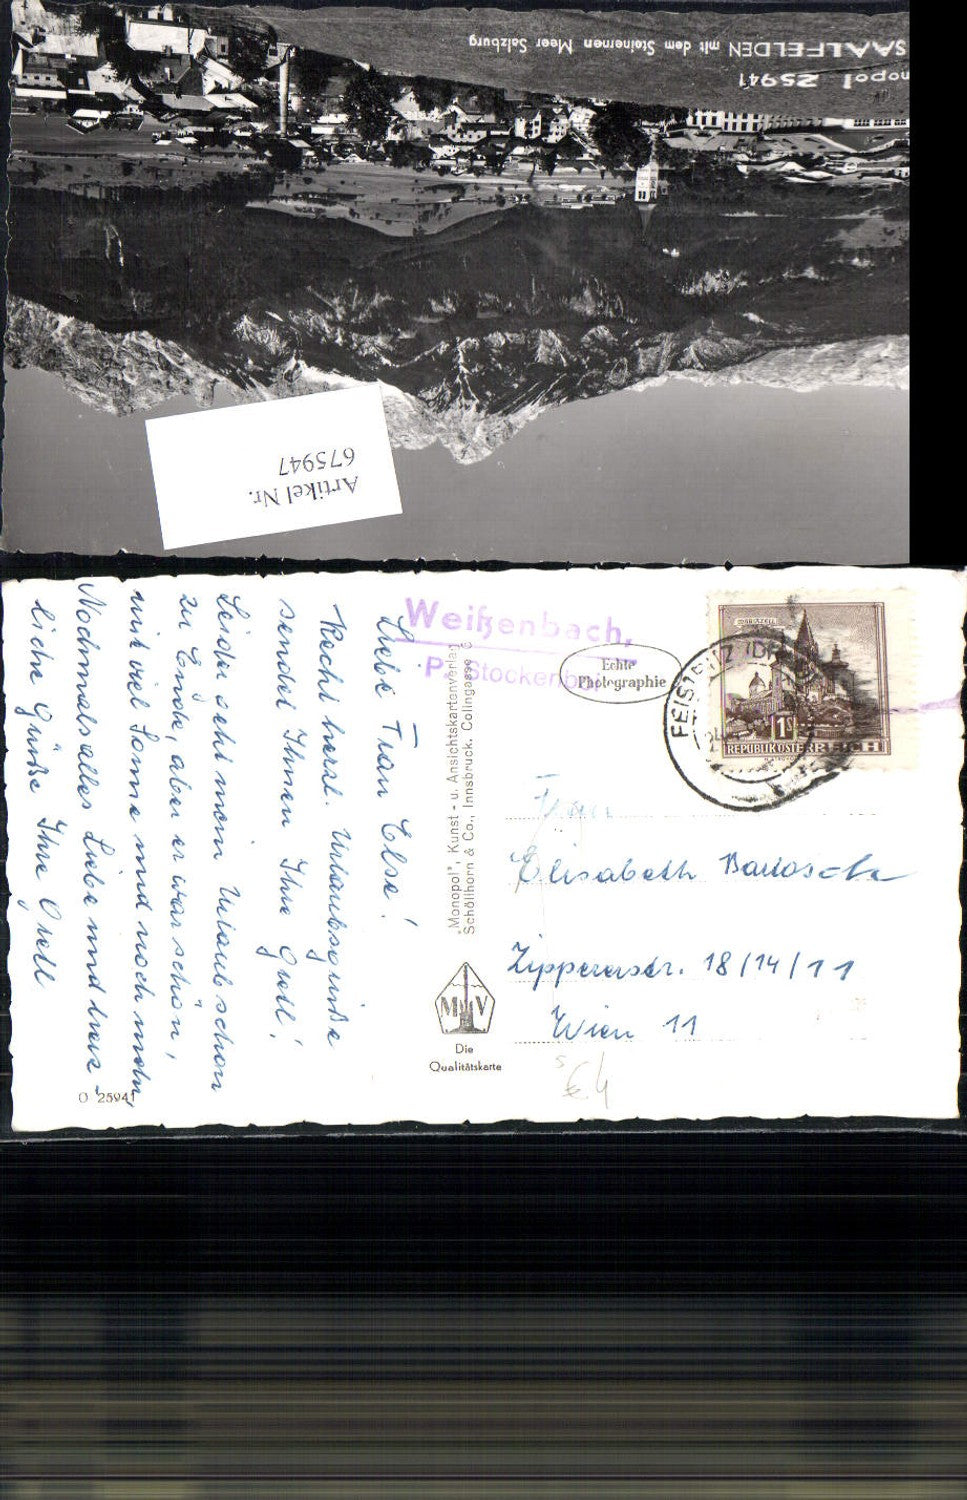 SAALFELDEN mit dem Steinernen Meer Salzburg
nopol 25941
Artikel Nr.
675947
Liebe Frau Else!
Recht herzl. Urlaubsgrüße
sendet Ihnen Ihre Gretl!
Leider geht mein Urlaub schon
zu Ende, aber er war schön,
mit viel Sonne und noch mehr
Nochmals alles Liebe und herz-
liche Grüße Ihre Gretl
O 25941
"Monopol", Kunst- u. Ansichtskartenverlag
Schöllhorn & Co., Innsbruck, Colingasse
M V
Die
Qualitätskarte
Weißenbach,
P. Stockenboi
Echte
Photographie
FEISTRITZ
1S
REPUBLIK ÖSTERREICH
Frau
Elisabeth
Zippererstr. 18/14/11
Wien 11